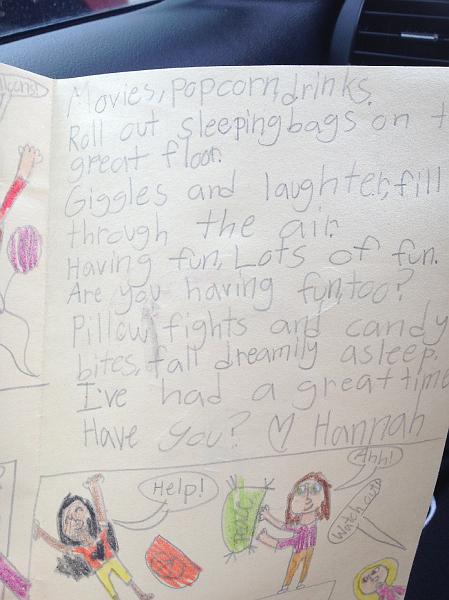 Movies, popcorn, drinks.
Roll out sleeping bags on t
great floor.
Giggles and laughter, fill
through the air.
Having fun, Lots of fun.
Are you having fun, too?
Pillow fights and candy
bites, fall dreamily asleep.
I've had a great time
Have you? ♡ Hannah
Help!
Ahh!
Watch out!